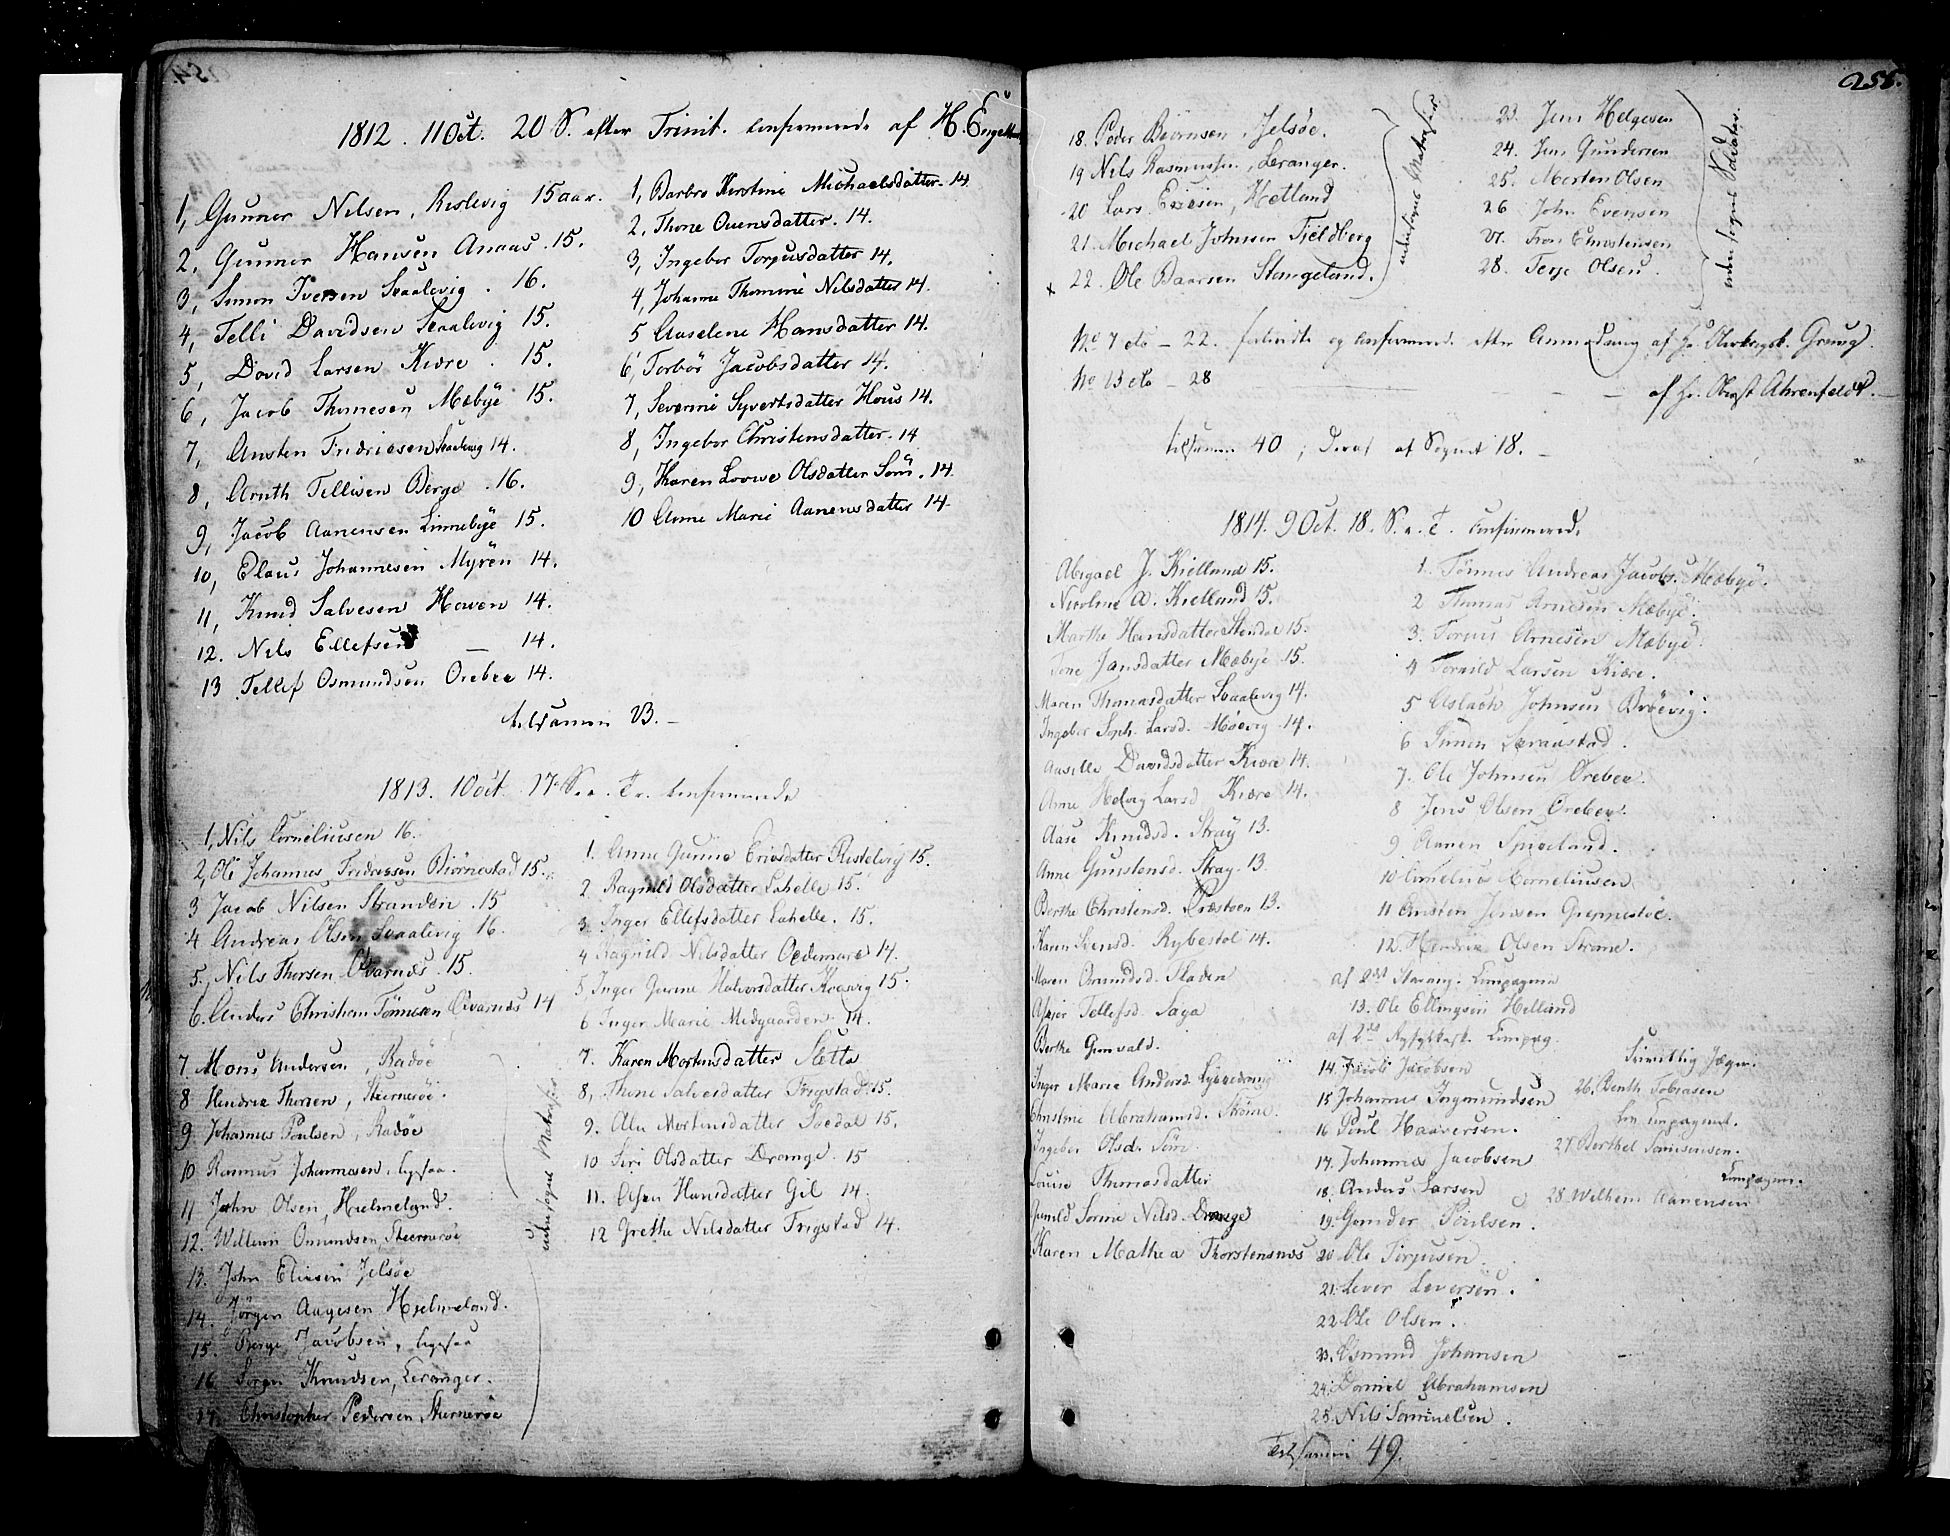 1812. 11 Oct. 20 S. efter Trinit. confirmerede af H. Engelhart
1, Gunner Nilsen, Rislevig 15 aar.
2, Gunner Hansen Anaas. 15.
3, Simon Iversen Skaalevig. 16.
4, Telli Davidsen Skaalevig 15.
5, David Larsen Kiære. 15.
6, Jacob Thomesen Mæbye 15.
7, Austen Fridricsen Skaalevig 14.
8, Arnth Tellisen Berge. 16.
9, Jacob Aanensen Linnebye 15.
10, Claus Johannesen Myren 14.
11, Knud Salvesen Howen 14.
12. Nils Ellefsen — 14.
13 Tellef Osmundsen Orebec 14.
1, Barbro Kirstine Michaelsdatter. 14
2, Thone Ouensdatter. 14.
3, Ingebor Torjusdatter 14.
4, Johanne Thomine Nilsdatter 14.
5 Aaselene Hansdatter 14.
6, Torbör Jacobsdatter 14.
7, Severine Syvertsdatter Hous 14.
8, Ingebor Christensdatter. 14
9, Karen Lovise Olsdatter Söm. 14.
10 Anne Marie Aanensdatter 14.
tilsammen 23.
1813. 10 Oct. 17 S. e. Tr. confirmerede
1, Nils Corneliusen 16.
2, Ole Johannes Fredricsen Biørnestad 15.
3 Jacob Nilsen Stranden. 15
4 Andreas Olsen Skaalevig 16.
5, Nils Thorsen Qvarnes. 15.
6. Anders Christian Tønnesen Qvarnes 14
7. Mons Andersen, Radöe
8 Hendric Thorsen, Stiernerøe.
9. Johannes Poulsen, Radöe
10 Rasmus Johannesen, ligesaa.
11 John Olsen, Hielmeland.
12. Willum Omundsen, Stiernerøe
13. John Eliesen Jelsøe
14. Jörgen Aagesen Hjelmeland.
15. Berge Jacobsen, ligesaa
16. Soren Knudsen, Leranger.
17. Christopher Pedersen, Stiernerøe
indrulleret Matroser
1. Anne Gurine Ericsdatter Rislevig 15.
2. Ragnild Olsdatter Lahelle 15.
3. Inger Ellefsdatter Lahelle. 15.
4 Ragnild Nilsdatter Oddemare 14.
5, Inger Gurine Halvorsdatter Kosevig 15.
6 Inger Marie Midgaarden. 14.
7. Karen Mortensdatter Sletta
8, Thone Salvesdatter Frigstad 15.
9. Ale Mortensdatter Soedal 15.
10 Siri Olsdatter Drange. 15
11. Asen Hansdatter Gil 14.
12 Grethe Nilsdatter Frigstad 14.
255.
18. Peder Biörnsen, Jelsøe.
19 Nils Rasmussen, Leranger.
20 Lars Ericsen, Hetland
21. Michael Johnsen Fjeldberg
x 22. Ole Baarsen Stangeland.
23. Jens Helgesen
24. Jens Gundersen
25. Morten Olsen
26 John Evensen
27. Tron Christensen
28. Terje Olsen.
No 7 til - 22. confirmeret efter Anmodning af Hr. Greug.
No 23 til - 28 — — — af Hr. Oberst Ahrenfeldt.
tilsammen 40; Deraf af Sognet 18.
1814. 9 Oct. 18. S. e. T. confirmered.
Abigael J. Kielland 15.
Nicoline A. Kielland 15.
Marthe Hansdatter Stendal 15.
Tone Jansdatter Mæbye 15.
Maren Thomasdatter Skaalevig 14.
Ingebor Soph. Larsd. Møevig 14.
Aaselle Davidsdatter Kiære 14.
Anne Helvig Larsd Kiære 14.
Aase Knudsd. Stray 13.
Anne Gunstensd. Stray. 13
Berthe Christensd. Præstøen 13.
Karen Svensd. Rybestol 14.
Maren Osmundsd. Fladen
Asbiør Tellefsd. Saga
Berthe Gunvald.
Inger Marie Andersd.
Christine Abrahamsd. Strömme.
Ingebor Olsd. Söm.
Louise Thomasdatter
Gunild Sorine Nilsd. Drange
Karen Mathea Thorstensnæs
1. Tønnes Andreas Jacobs. Mæbye.
2 Thomas Arnesen Mæbye.
3. Torjus Arnesen Mæbye.
4 Tornild Larsen Kiære.
5 Aslach Johnsen Brøevig.
6 Simon Skraastad.
7. Ole Johnsen Orebec.
8 Jens Olsen Orebec.
9 Aanen Spigeland.
10 Cornelius Corneliusen
11 Austen Jensen Grepnestöe.
12. Hendric Olsen Strøme.
af 2det Stavang. Compagnie
13. Ole Ellingsen Helland
af 2det Ryfylkesk. Compag.
14. Jacob Jacobsen
15 Johannes Ingmundsen
16 Poul Haaversen.
17. Johannes Jacobsen
18. Anders Larsen
19. Gunder Poulsen.
20 Ole Torjusen.
21. Lever Leversen.
22 Ole Olsen.
23. Osmund Johansen
24. Daniel Abrahamsen
25. Nils Samuelsen.
Frivillig Jæger.
26. Benth Tobiasen
27. Berthel Samsonsen.
Compagnie.
28. Wilhem Aanensen
Tilsammen 49.